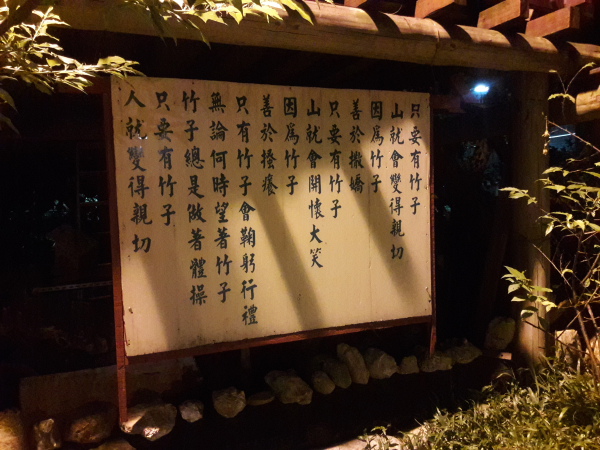 只要有竹子
山就會變得親切
因爲竹子
善於撒嬌
只要有竹子
山就會開懷大笑
因爲竹子
善於搔癢
只有竹子會鞠躬行禮
無論何時望著竹子
竹子總是做著體操
只要有竹子
人就變得親切